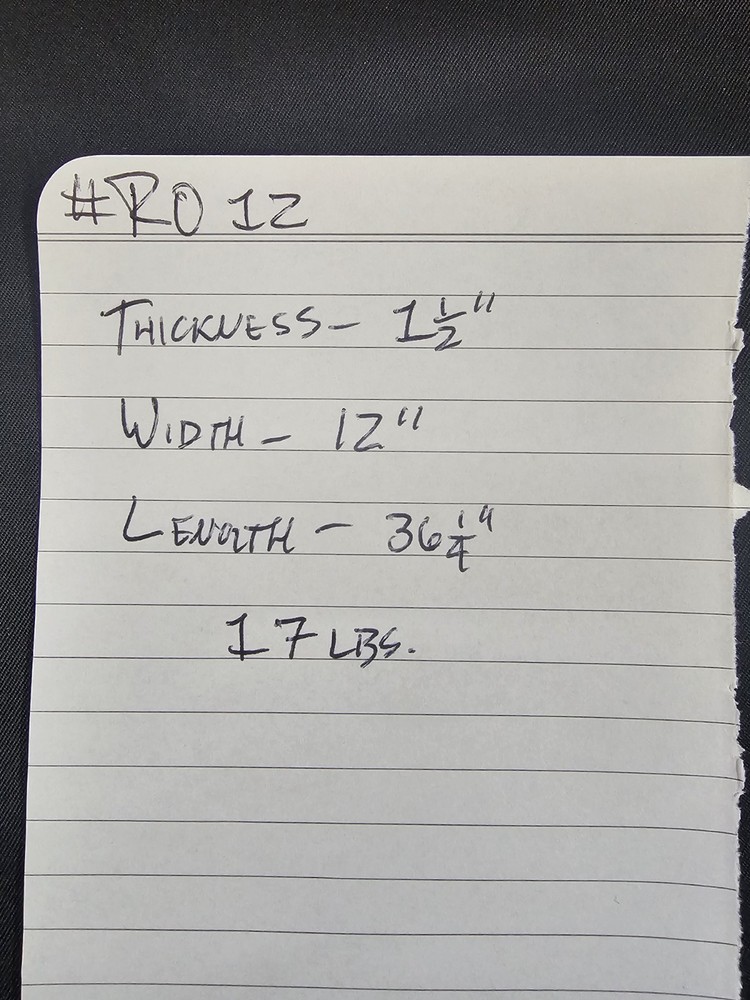 #RO 12
THICKNESS- 1 1/2"
WIDTH - 12"
LENGTH - 36 1/4"
17 LBS.